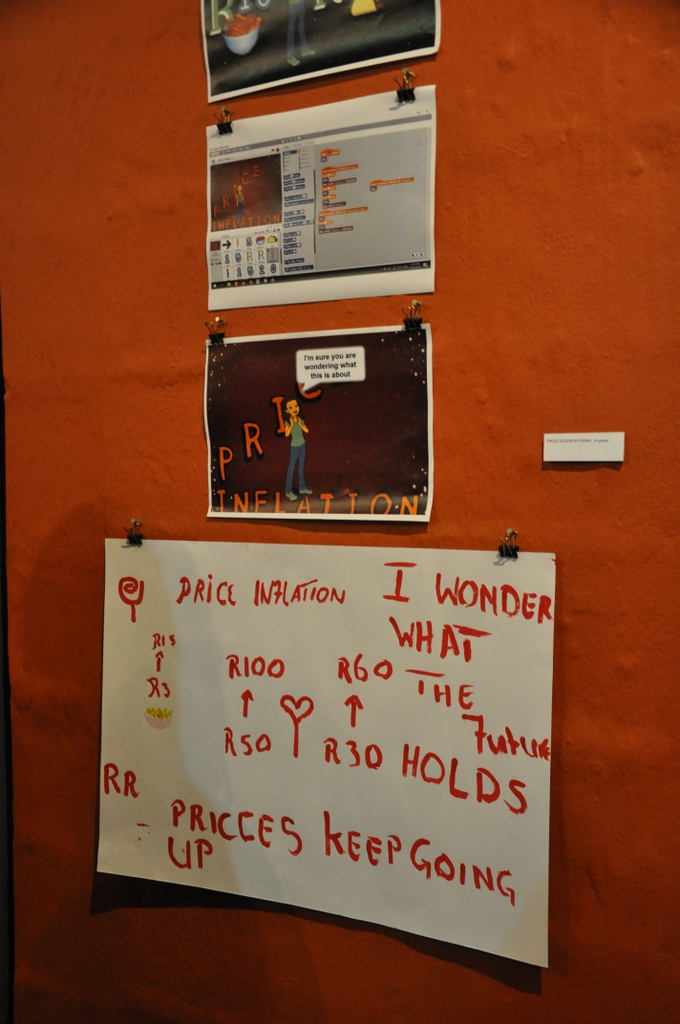 I'm sure you are
wondering what
this is about
PRICE
INFLATION
PRICE INFLATION
I WONDER
WHAT
THE
Future
HOLDS
R15
R3
R100
R50
R60
R30
RR
PRICCES KEEP GOING
UP